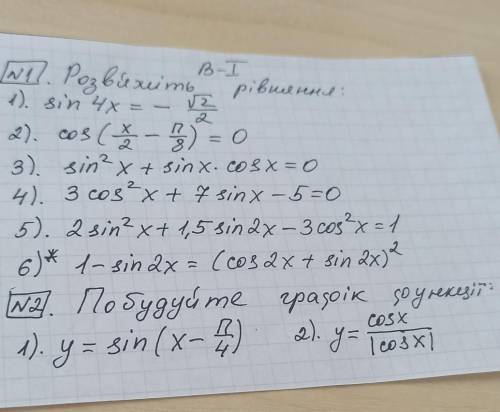 В-I
№1. Розв'яжіть рівняння:
1). sin 4x = - √2/2
2). cos(x/2 - π/8) = 0
3). sin²x + sinx · cosx = 0
4). 3 cos²x + 7 sinx - 5 = 0
5). 2 sin²x + 1,5 sin2x - 3cos²x = 1
6)* 1 - sin2x = (cos2x + sin2x)²
№2. Побудуйте графік функції:
1). y = sin(x - π/4) 2). y = cosx/|cosx|